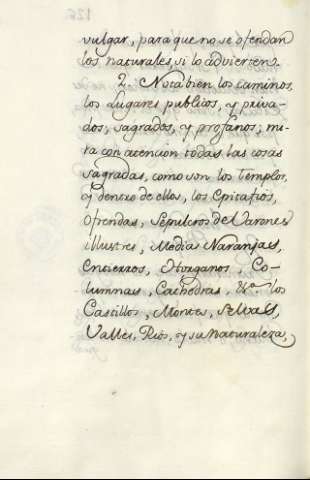 vulgar, para que no se ofendan
los naturales, si lo advierten.
2. Nota bien los caminos,
los Lugares publicos, y priva-
dos, sagrados, y profanos; mi-
ra con atencion todas las cosas
sagradas, como son los Templos,
y dentro de ellos, los Epitafios,
Ofrendas, Sepulcros de Varones
illustres, Medias Naranjas,
Entierros, Organos Co-
lumnas, Cathedras, &a. los
Castillos, Montes, Selvas,
Valles, Rios, y su naturaleza,